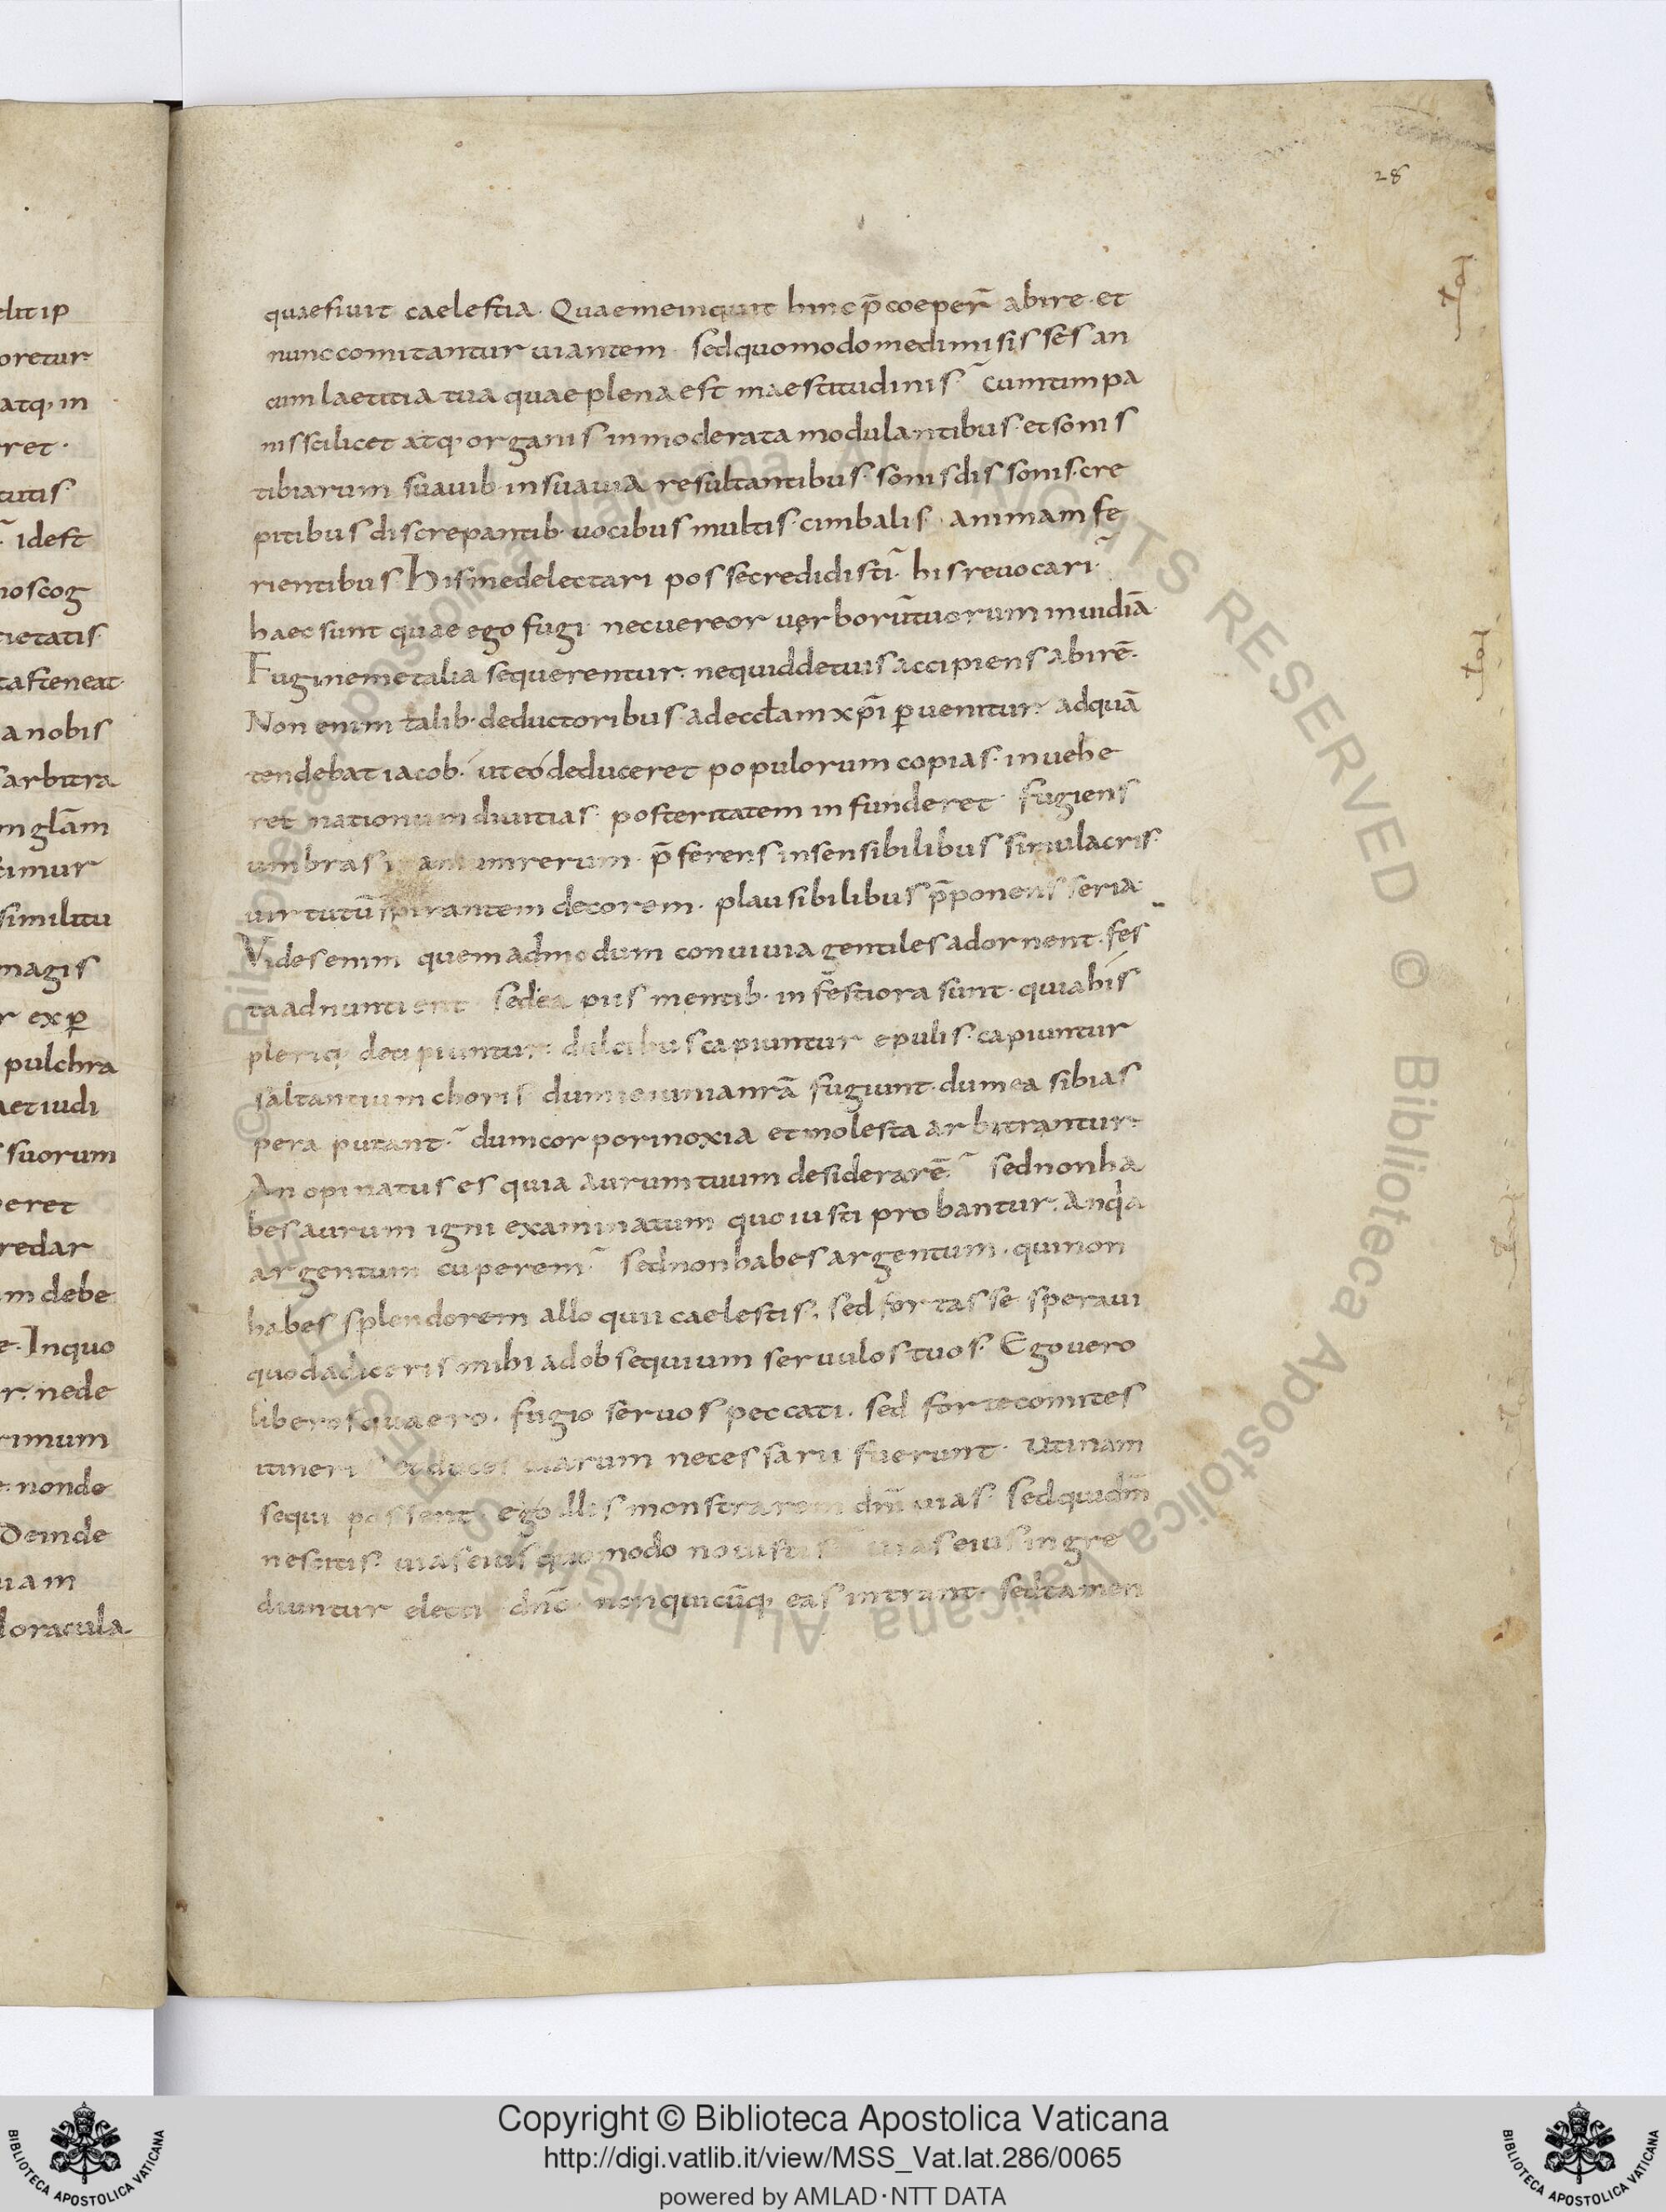 28
quaesiuit caelestia. Quae me inquit hinc p̄ coeper̄ abire. et
nunc comitantur uiantem. sed quomodo me dimisisses an
cum laetitia tua quae plena est maestitudinis. Cum timpa
nis scilicet atq; organis inmoderata modulantibus. et sonis
tibiarum suauib. insuauia resultantibus. sonis dissonis. cre
pitibus discrepantib. uocibus multis. cimbalis. animam fe
rientibus. His me delectari posse credidisti. his reuocari.
haec sunt quae ego fugi. nec uereor uerborū tuorum inuidiā.
Fugi ne me talia sequerentur. ne quid de tuis accipiens abirē.
Non enim talib. deductoribus ad eccłam xp̄i ꝑuenitur. ad quā
tendebat iacob. ut eó deduceret populorum copias. inuehe
ret nationum diuitias. posteritatem infunderet. fugiens
umbras rerum. p̄ferens insensibilibus simulacris.
uirtutū spirantem decorem. plausibilibus p̄ponens seria.
Vides enim quemadmodum conuiuia gentiles adornent. fes
ta adnuntient. sed ea piis mentib. infestiora sunt. quia his
pleriq; decipiuntur. dulcibus capiuntur epulis. capiuntur
saltantium choris dum ieiunia nr̄a fugiunt. dum ea sibi as
pera putant. dum corpori noxia et molesta arbitrantur.
An opinatus es quia aurum tuum desiderarē. sed non ha
bes aurum igni examinatum quo iusti probantur. An qa
argentum cuperem. sed non habes argentum. qui non
habes splendorem alloquii caelestis. sed fortasse speraui
quod adiceris mihi ad obsequium seruulos tuos. Ego uero
liberos quaero. fugio seruos peccati. sed forte comites
itineris et duces uiarum necessarii fuerunt. Utinam
sequi possent. ego illis monstrarem dn̄i uias. sed qui dn̄m
nescitis. uias eius quomodo nouistis uias eius ingre
diuntur electi dn̄o. non quicūq; eas intrant. sed tamen
elit ip
oretur
atq; in
ret.
tutis
idest
noscog
tietatis
ta steneat.
a nobis
s arbitra
m glām
timur
similitu
magis
r ex ꝑ
pulchra
aet iudi
s suorum
eret
redar
m debe
e. In quo
r. nede
rimum
e. non de
Deinde
uam
l oracula
© Biblioteca Apostolica Vaticana ALL RIGHTS RESERVED © Biblioteca Apostolica Vaticana ALL RIGHTS RESERVED
BIBLIOTECA APOSTOLICA VATICANA
Copyright © Biblioteca Apostolica Vaticana
http://digi.vatlib.it/view/MSS_Vat.lat.286/0065
powered by AMLAD·NTT DATA
BIBLIOTECA APOSTOLICA VATICANA